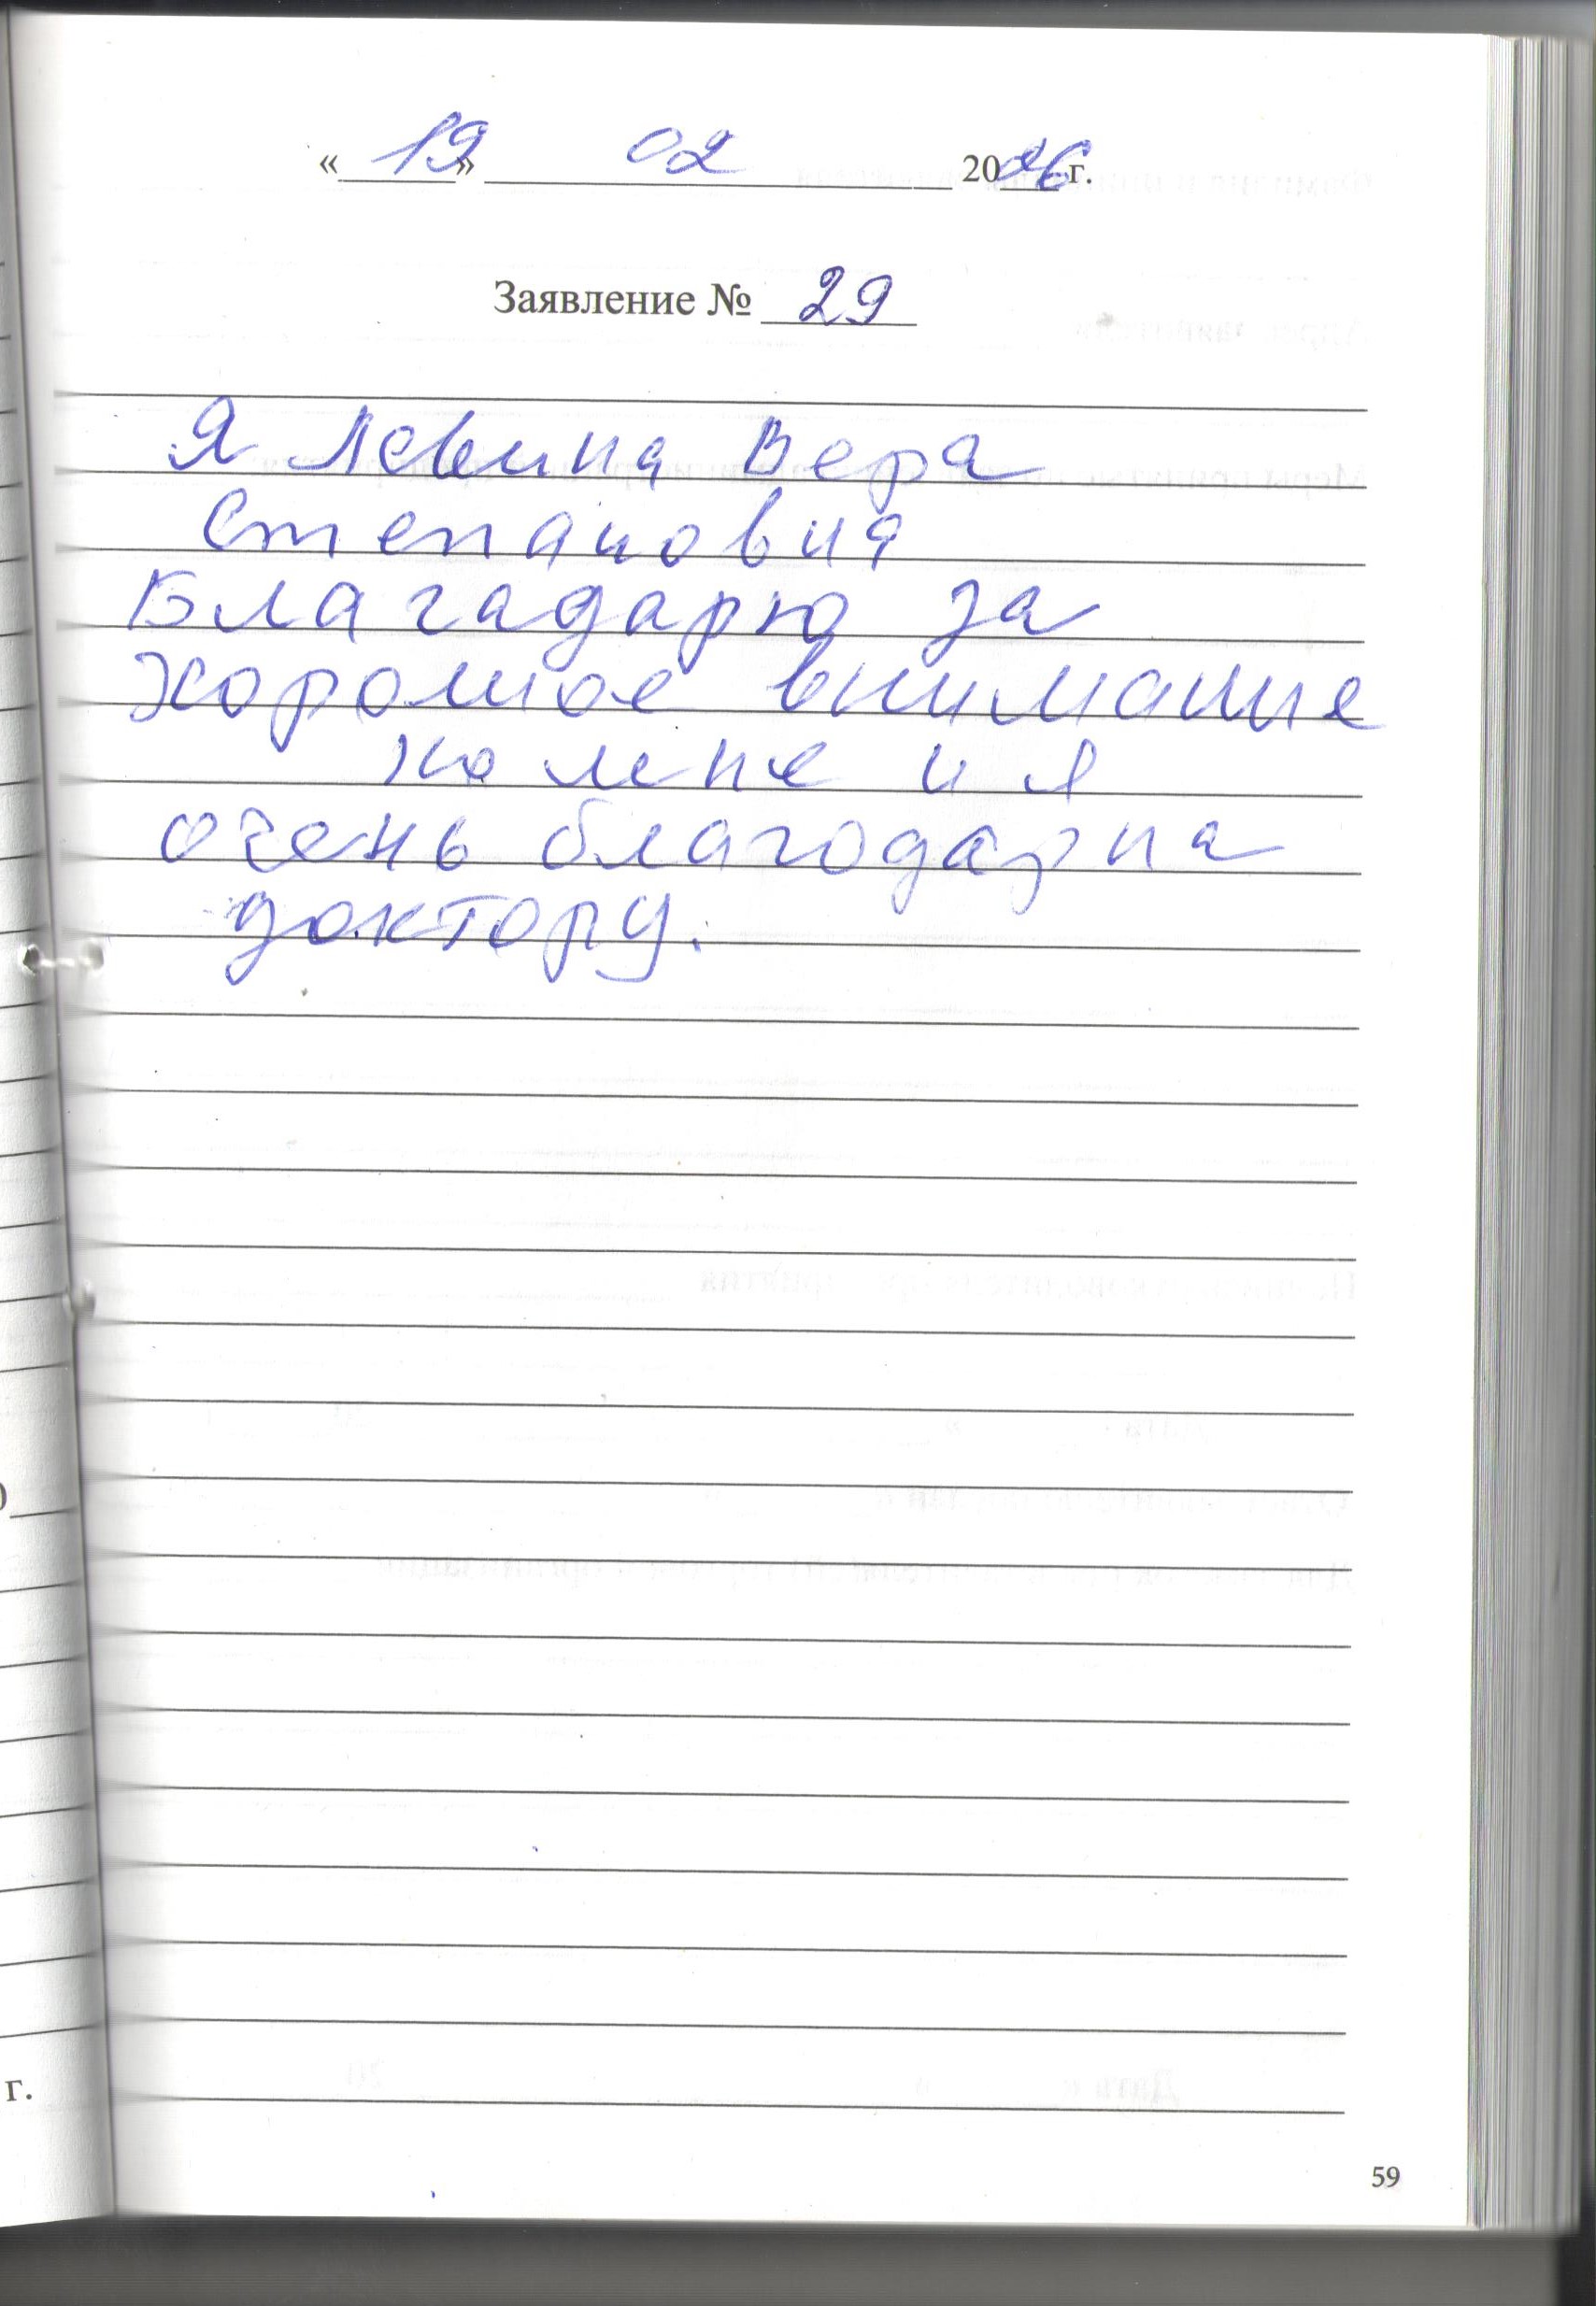 « 19 » 02 2026 г.
Заявление № 29
Я Левина Вера
Степановна
Благадарю за
хорошое внимание
ко мне и я
очень благодарна
доктору.
г.
59